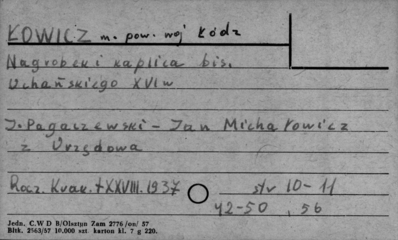 ŁOWICZ m. pow. woj Łódz
Nagrobek i kaplica bis.
Uchańskiego XVI w
J. Pagaczewski - Jan Michałowicz
z Urzędowa
Rocz. Krak. t XXVIII. 1937 str 10-11
42-50, 56
Jedn. C.W D B/Olsztyn Zam 2776/on/ 57
Bltk. 2563/57 10.000 szt. karton kl. 7 g 220.